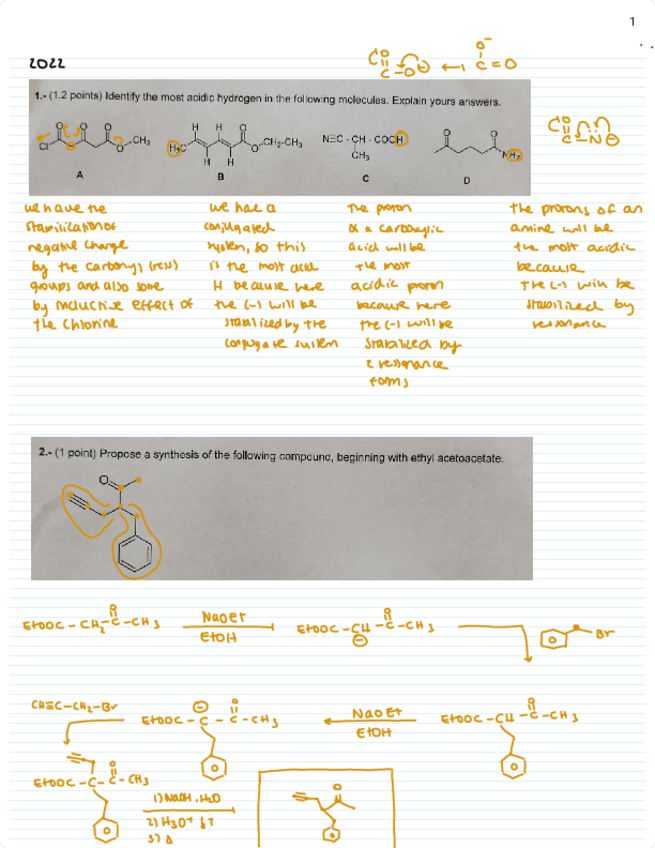 1
2022
C=O
1.- (1.2 points) Identify the most acidic hydrogen in the following molecules. Explain yours answers.
O O O
Cl O CH3
H H O
H3C O CH2-CH3
H H
N≡C - CH - COOH
CH3
O O
NH2
A B C D
we have the
stabilization of
negative charge
by the carbonyl (res)
groups and also some
by inductive effect of
the chlorine
we hae a
conjugated
system, so this
is the most acid
H because here
the (-) will be
stabilized by the
conjugate system
The proton
of a carboxylic
acid will be
the most
acidic proton
because here
the (-) will be
stabilized by
2 resonance
forms
The protons of an
amine will be
the most acidic
because
The (-) will be
stabilized by
resonance
2.- (1 point) Propose a synthesis of the following compound, beginning with ethyl acetoacetate.
O
EtOOC - CH2 - C - CH3
O
NaOEt
EtOH
EtOOC - CH - C - CH3
O
Br
CH≡C-CH2-Br
EtOOC - C - C - CH3
O
NaOEt
EtOH
EtOOC - CH - C - CH3
O
EtOOC - C - C - CH3
O
1) NaOH, H2O
2) H3O+ ↓T
3) Δ
O